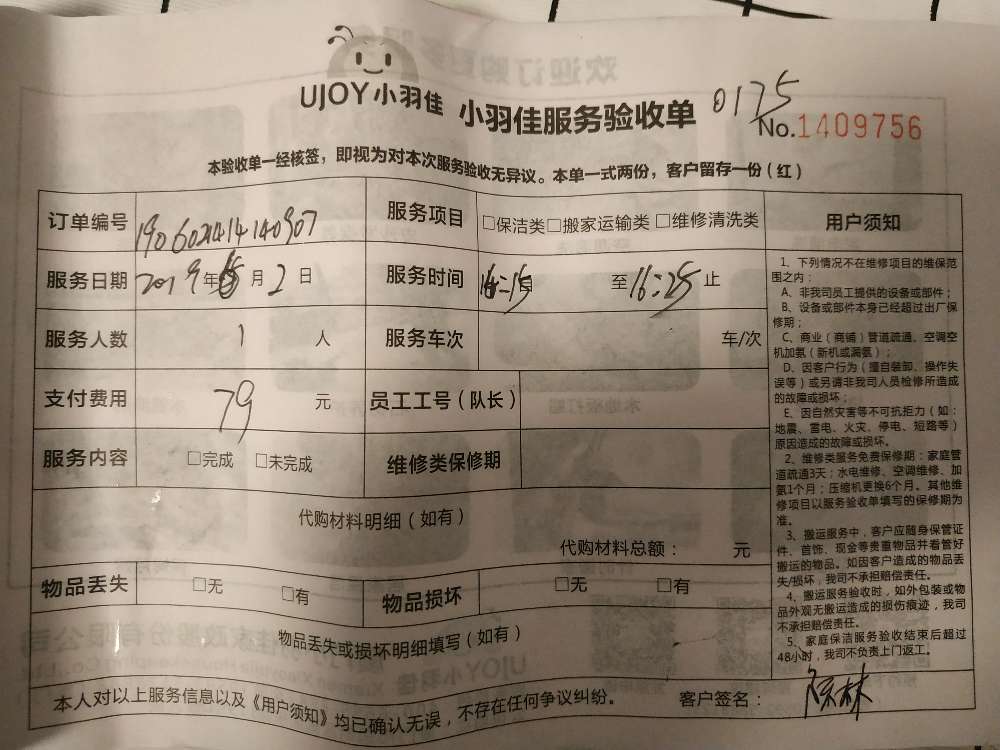 欢迎订购更多服
UJOY小羽佳 小羽佳服务验收单 0175
No.1409756
本验收单一经核签，即视为对本次服务验收无异议。本单一式两份，客户留存一份（红）
订单编号 服务项目 □保洁类□搬家运输类 □维修清洗类 用户须知
服务日期 2019年 月2日 服务时间 16:15 至16:25止
服务人数 1 人 服务车次 车/次
支付费用 79 元 员工工号（队长）
服务内容 □完成 □未完成 维修类保修期
代购材料明细（如有）
代购材料总额： 元
物品丢失 □无 □有 物品损坏 □无 □有
物品丢失或损坏明细填写（如有）
本人对以上服务信息以及《用户须知》均已确认无误，不存在任何争议纠纷。 客户签名：
1、下列情况不在维修项目的维保范
围之内：
A、非我司员工提供的设备或部件；
B、设备或部件本身已经超过出厂保
修期；
C、商业（商铺）管道疏通、空调空
机加氨（新机或漏氨）；
D、因客户行为（擅自装卸、操作失
误等）或另请非我司人员检修所造成
的故障或损坏；
E、因自然灾害等不可抗拒力（如：
地震、雷电、火灾、停电、短路等）
原因造成的故障或损坏。
2、维修类服务免费保修期：家庭管
道疏通3天；水电维修、空调维修、加
氨1个月；压缩机更换6个月。其他维
修项目以服务验收单填写的保修期为
准。
3、搬运服务中，客户应随身保管证
件、首饰、现金等贵重物品并看管好
搬运的物品。如因客户造成的物品丢
失/损坏，我司不承担赔偿责任。
4、搬运服务验收时，如外包装或物
品外观无搬运造成的损伤痕迹，我司
不承担赔偿责任。
5、家庭保洁服务验收结束后超过
48小时，我司不负责上门返工。